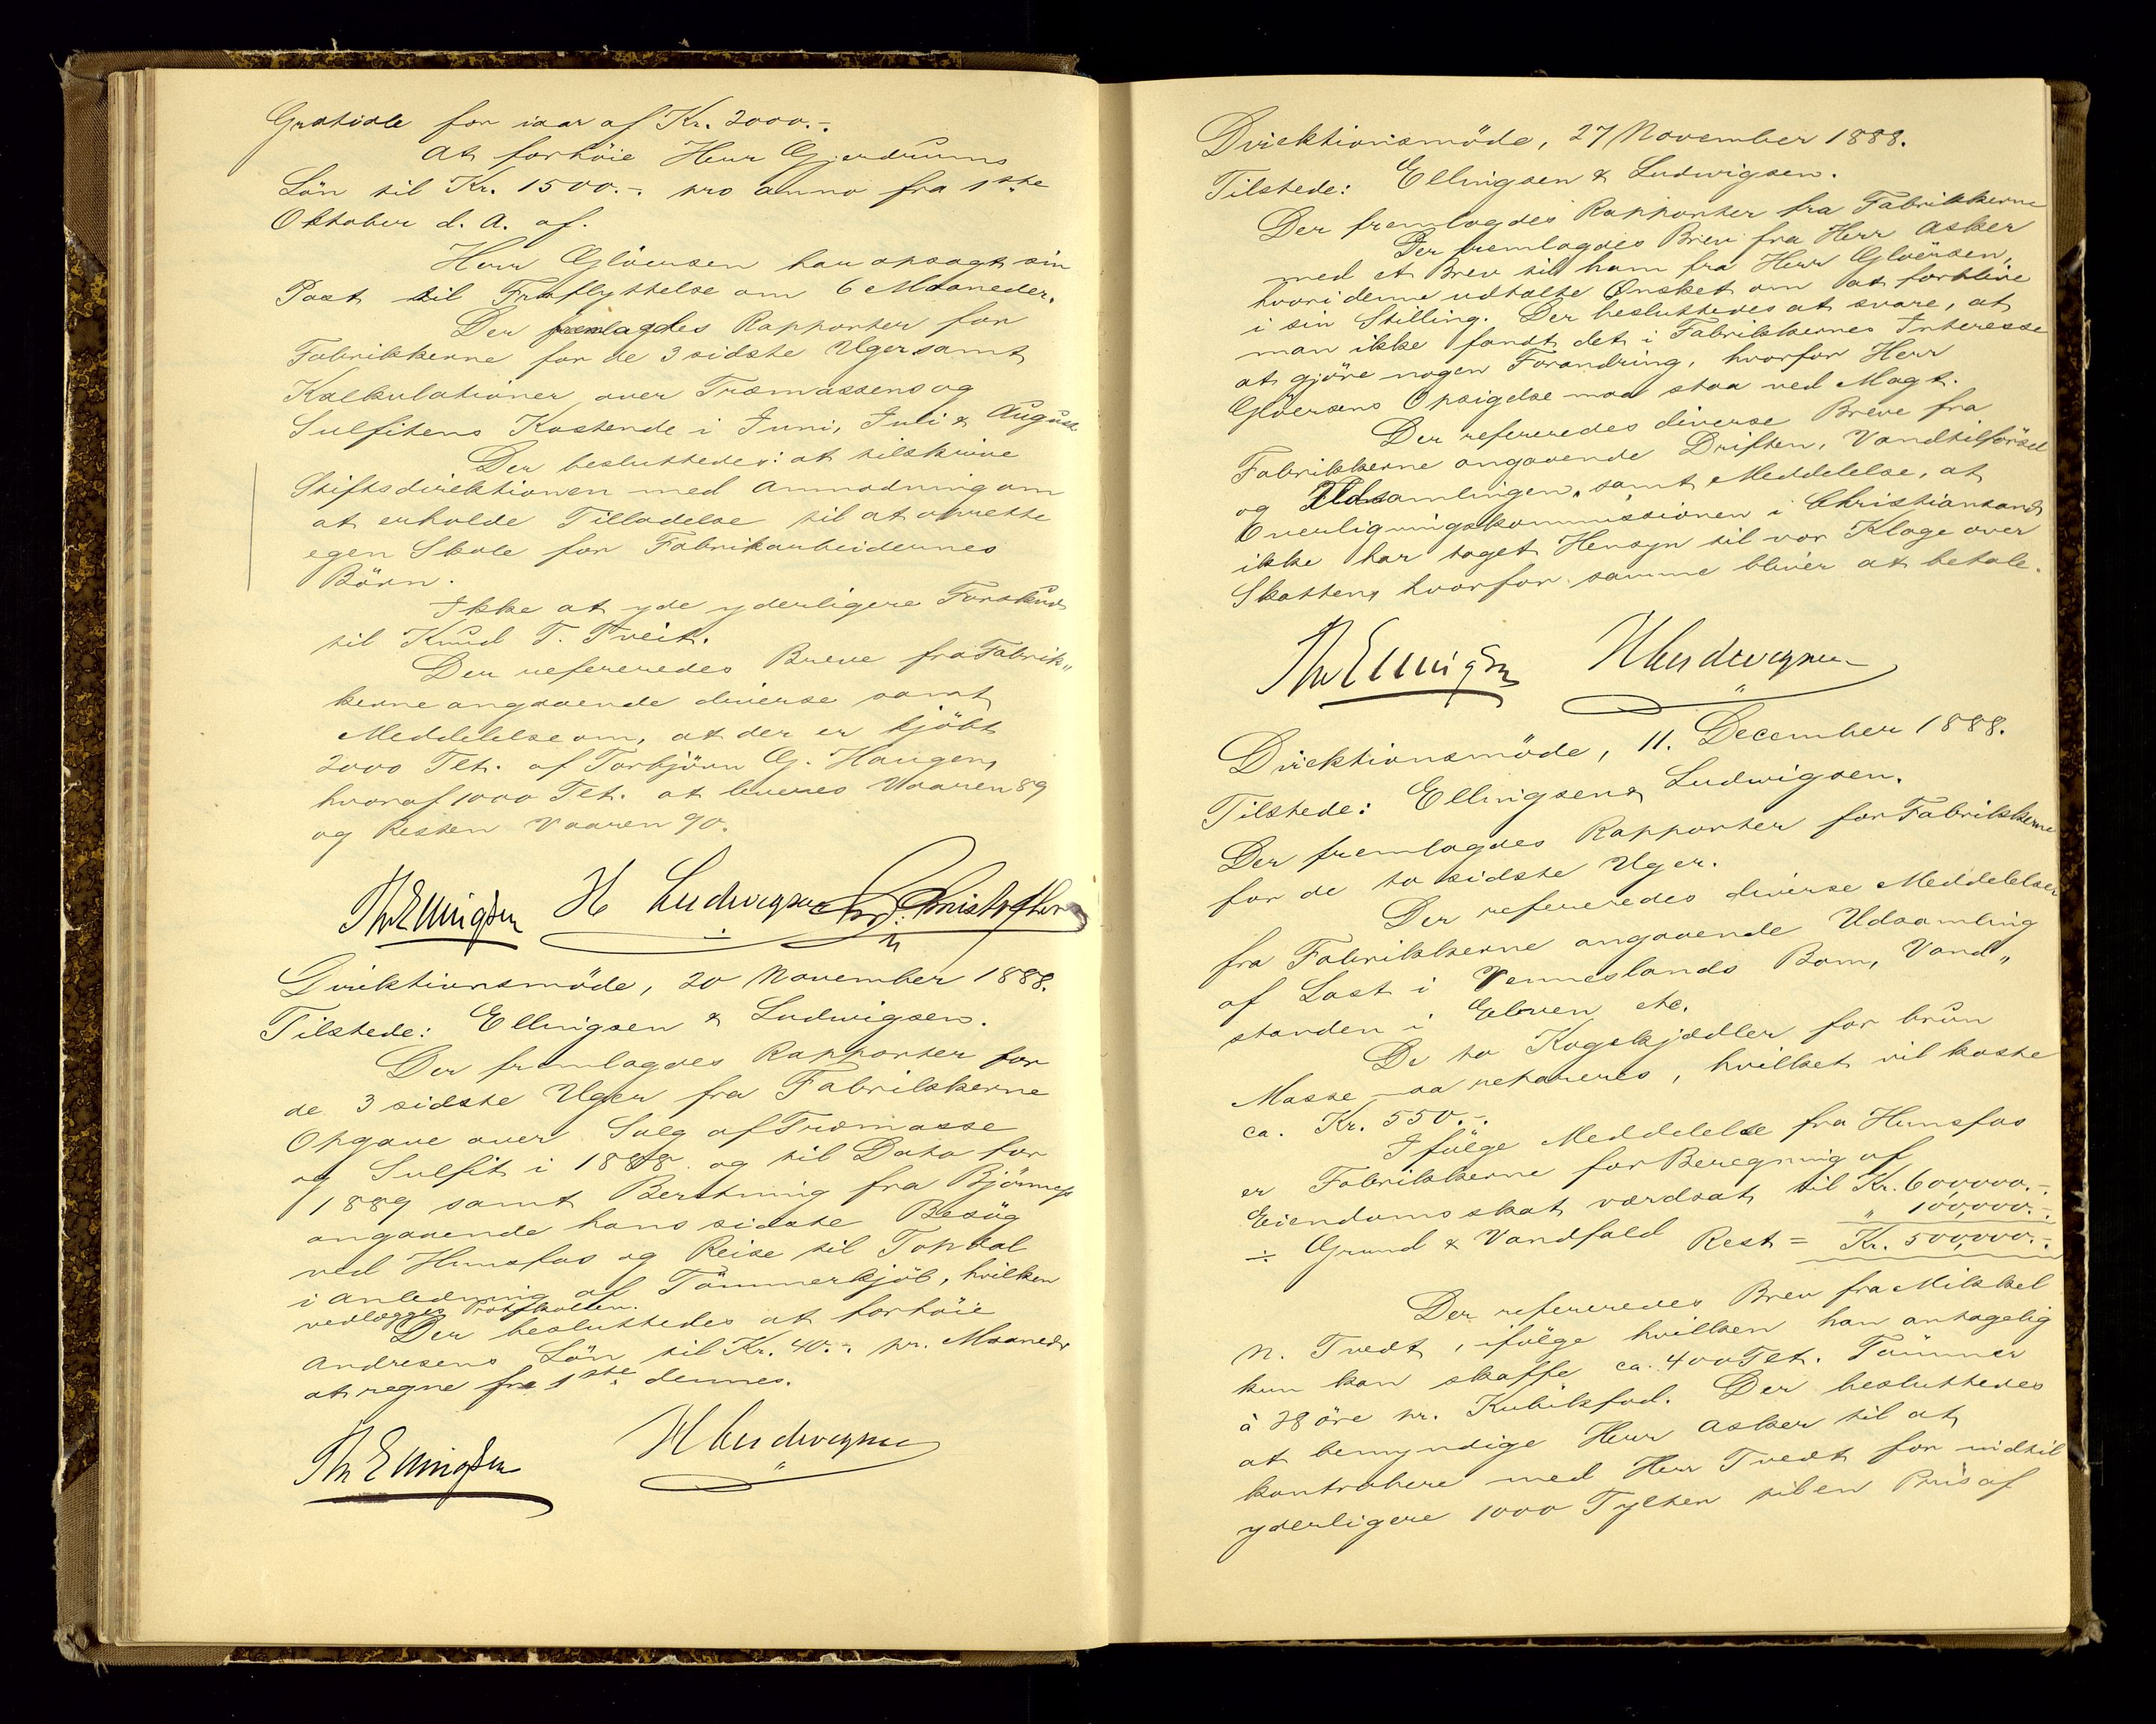 Gratiale for iaar af Kr. 2000.-.
At forhöie Herr Gjerdrums
Lön til Kr. 1500.-. pro anno fra 1ste
Oktober d. A. af.
Herr Glöersen har opsagt sin
Post til Fraflyttelse om 6 Maaneder.
Der fremlagdes Rapporter for
Fabrikkerne for de 3 sidste Uger samt
Kalkulationer over Træmassens og
Sulfitens Kostende i Juni, Juli & August
Der besluttedes: at tilskrive
Stiftsdirektionen med Anmodning om
at erholde Tilladelse til at oprette
egen Skole for Fabrikarbeidernes
Börn.
Ikke at yde yderligere Forskud
til Knud T. Tveit.
Der refereredes Breve fra Fabrik"
kerne angaaende diverse samt
Meddelelse om, at der er kjöbt
2000 Tlt. af Torbjörn G. Haugen,
hvoraf 1000 Tlt. at leveres Vaaren 89
og Resten Vaaren 90.
Th Ellingsen H Ludwigsen Chr. Christophersen
Direktionsmöde, 20 November 1888.
Tilstede: Ellingsen & Ludwigsen.
Der fremlagdes Rapporter for
de 3 sidste Uger fra Fabrikkerne
Opgave over Salg af Træmasse
og Sulfit i 1888 og til Dato for
1889 samt Beretning fra
angaaende hans sidste Besög
ved Hunsfos og Reise til Topdal
i Anledning af Tömmerkjöb, hvilken
vedlægges Protokollen.
Der besluttedes at forhöie
Andresens Lön til Kr. 40.-. pr. Maaned
at regne fra 1ste dennes.
Th Ellingsen H Ludwigsen
Direktionsmöde, 27 November 1888.
Tilstede: Ellingsen & Ludwigsen.
Der fremlagdes Rapporter fra Fabrikkerne
Der fremlagdes Brev fra Herr Asker
med et Brev til ham fra Herr Glöersen,
hvori denne udtalte Ønsket om at forblive
i sin Stilling. Der besluttedes at svare, at
man ikke fandt det i Fabrikkernes Interesse
at gjöre nogen Forandring, hvorfor Herr
Glöersens Opsigelse maa staa ved Magt.
Der refereredes diverse Breve fra
Fabrikkerne angaaende Driften, Vandtilförsel
og Udsamlingen, samt Meddelelse, at
Overligningskommissionen i Christiansand
ikke har taget Hensyn til vor Klage over
Skatten, hvorfor samme bliver at betale.
Th Ellingsen H Ludwigsen
Direktionsmöde, 11. December 1888.
Tilstede: Ellingsen & Ludwigsen.
Der fremlagdes Rapporter for Fabrikkerne
for de to sidste Uger.
Der refereredes diverse Meddelelser
fra Fabrikkerne angaaende Udsamling
af Last i Venneslands Bom, Vand"
standen i Elven etc.
De to Kogekjedler for brun
Masse maa repareres, hvilket vil koste
ca. Kr. 550.-.
Ifölge Meddelelse fra Hunsfos
er Fabrikkerne for Beregning af
Eiendomsskat værdsat til Kr. 600,000.-.
÷ Grund & Vandfald " 100,000.-.
Rest = Kr. 500,000.-.
Der refereredes Brev fra Mikkel
N. Tvedt, ifölge hvilken han antagelig
kun kan skaffe ca. 400 Tlt. Tömmer
à 28 öre pr. Kubikfod. Der besluttedes
at bemyndige Herr Asker til at
kontrahere med Herr Tvedt for indtil
yderligere 1000 Tylter til en Pris af